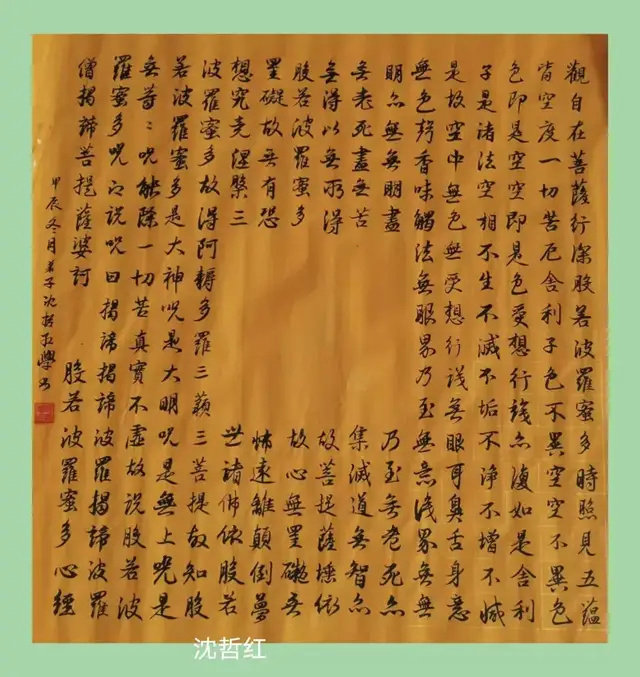 觀自在菩薩行深般若波羅蜜多時照見五蘊
皆空度一切苦厄舍利子色不異空空不異色
色即是空空即是色受想行識亦復如是舍利
子是諸法空相不生不滅不垢不淨不增不減
是故空中無色無受想行識無眼耳鼻舌身意
無色聲香味觸法無眼界乃至無意識界無無
明亦無無明盡 乃至無老死亦
無老死盡無苦 集滅道無智亦
無得以無所得 故菩提薩埵依
般若波羅蜜多 故心無罣礙無
罣礙故無有恐 怖遠離顛倒夢
想究竟涅槃三 世諸佛依般若
波羅蜜多故得阿耨多羅三藐三菩提故知般
若波羅蜜多是大神呪是大明呪是無上呪是
無等〻呪能除一切苦真實不虛故說般若波
羅蜜多呪即說呪曰揭諦揭諦波羅揭諦波羅
僧揭諦菩提薩婆訶 般若波羅蜜多心經
甲辰冬月弟子沈哲红學書
沈哲红